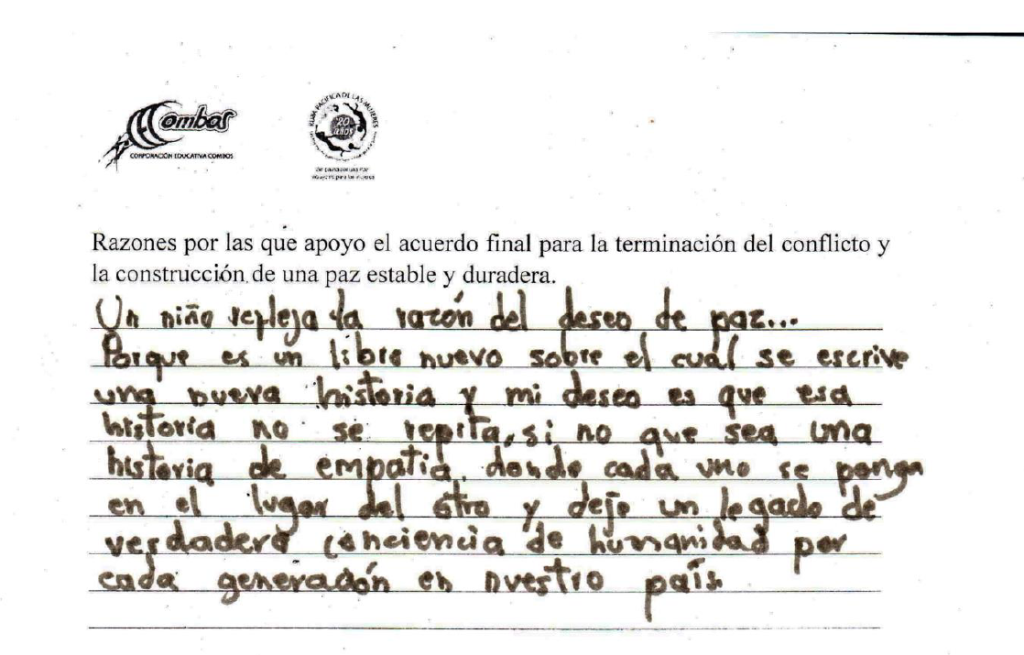 Combos
CORPORACIÓN EDUCATIVA COMBOS
RUTA PACÍFICA DE LAS MUJERES
20
AÑOS
Razones por las que apoyo el acuerdo final para la terminación del conflicto y
la construcción de una paz estable y duradera.
Un niño refleja la razón del deseo de paz...
Porque es un libro nuevo sobre el cual se escrive
una nueva historia y mi deseo es que esa
historia no se repita, si no que sea una
historia de empatia, donde cada uno se ponga
en el lugar del otro y deje un legado de
verdadera conciencia de humanidad por
cada generación en nuestro país